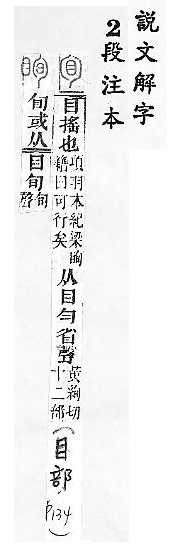 說文解字
2段注本
目搖也 項羽本紀梁眴
籍曰可行矣 从目勻省聲 黃絢切
十二部 (目部 P134)
旬或从目旬 旬
聲